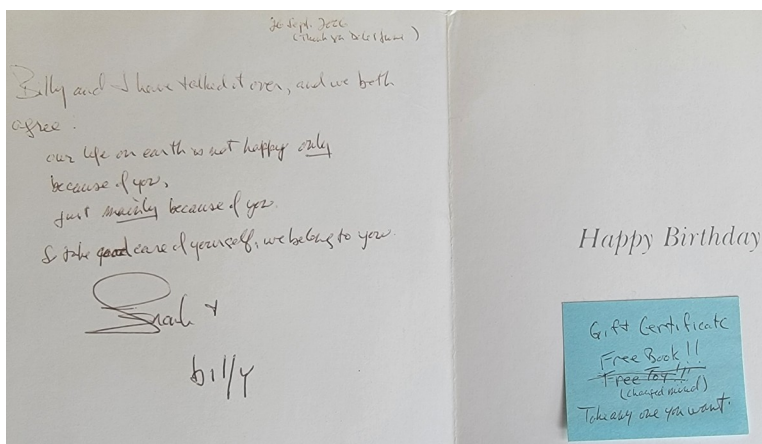 26 Sept. 
(Thank you
Billy and I have talked it over, and we both
agree.
our life on earth is not happy only
because of you,
just mainly because of you.
So take good care of yourself, we belong to you.
+
billy
Happy Birthday
Gift Certificate
Free Book!!
Free Toy!!!
(changed mind)
Take any one you want.